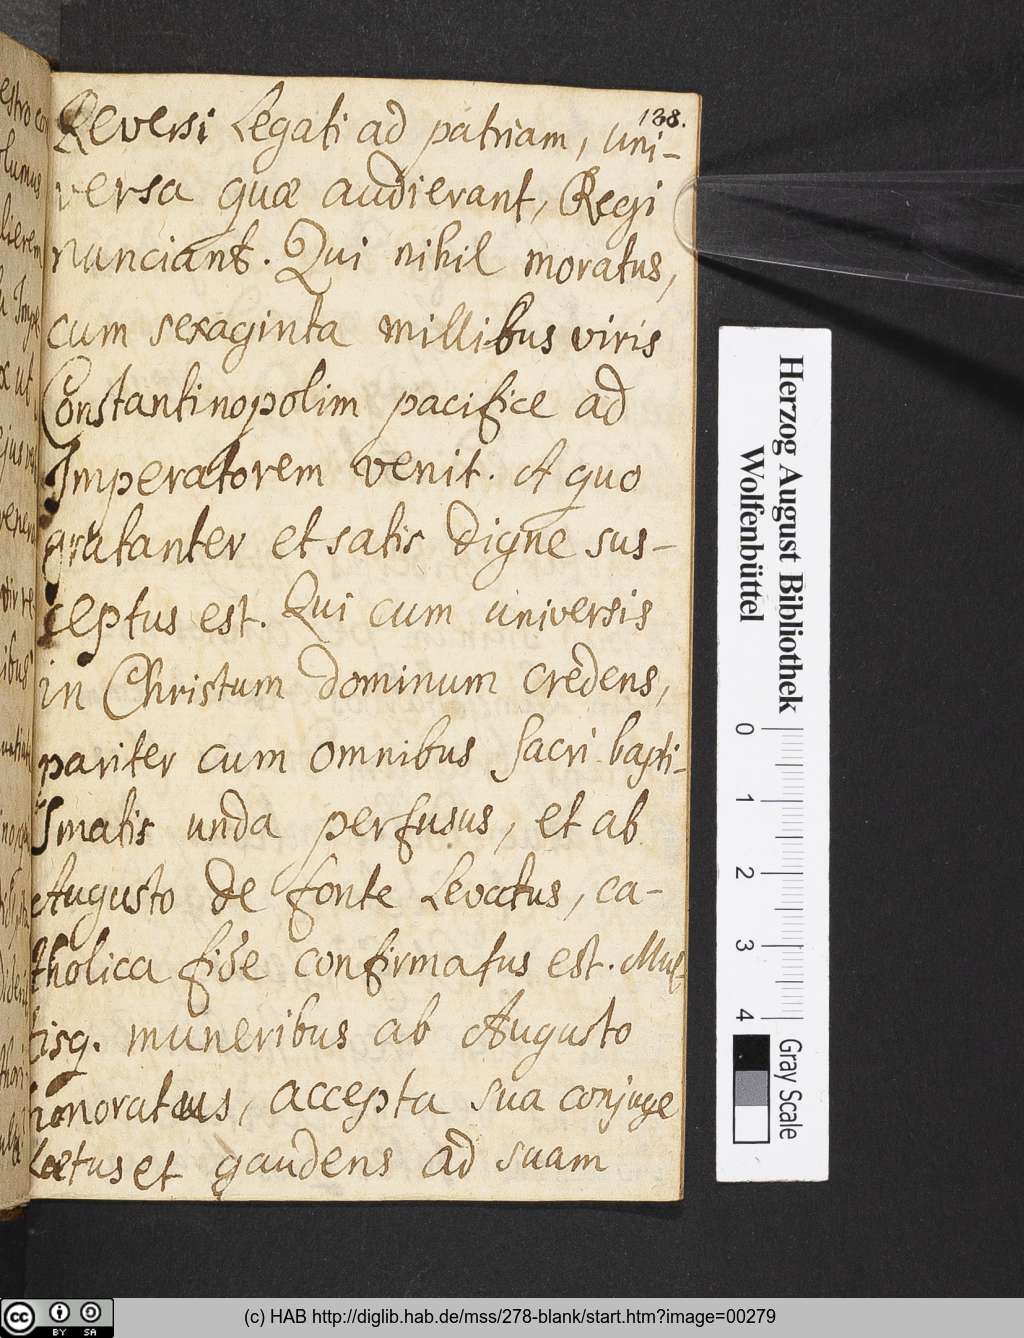 138.
Reversi Legati ad patriam, uni-
versa quæ audierant, Regi
nunciant. Qui nihil moratus,
cum sexaginta millibus viris
Constantinopolim pacifice ad
Imperatorem venit. A quo
gratanter et satis digne sus-
ceptus est. Qui cum universis
in Christum dominum credens,
pariter cum omnibus sacri bapti-
smatis unda perfusus, et ab
Augusto de fonte levatus, ca-
tholica fide confirmatus est. Mul-
tisq. muneribus ab Augusto
honoratus, accepta sua conjuge
lætus et gaudens ad suam
Herzog August Bibliothek
Wolfenbüttel
0 1 2 3 4
Gray Scale
cc BY SA
(c) HAB http://diglib.hab.de/mss/278-blank/start.htm?image=00279